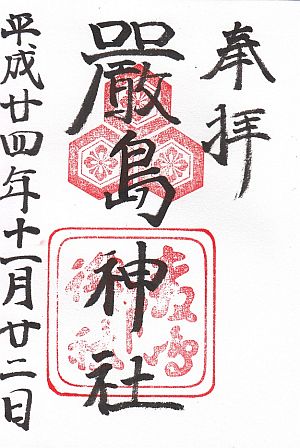 奉拝
嚴島神社
平成廿四年十一月廿二日